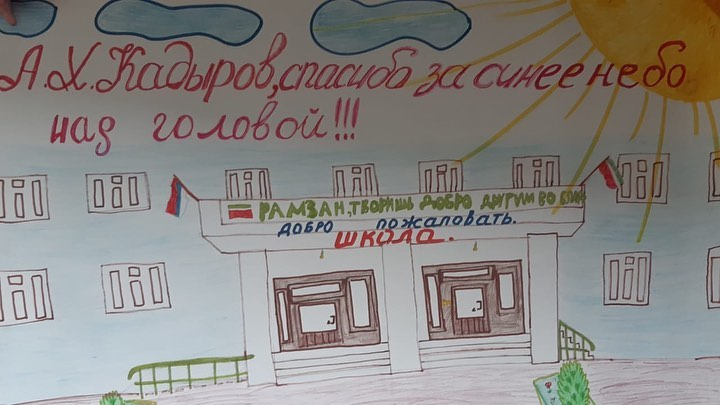 А.Х.Кадыров, спасибо за синее небо
над головой!!!
РАМЗАН, ТВОРИШЬ ДОБРО ДРУГИМ ВО
ДОБРО ПОЖАЛОВАТЬ.
ШКОЛА.